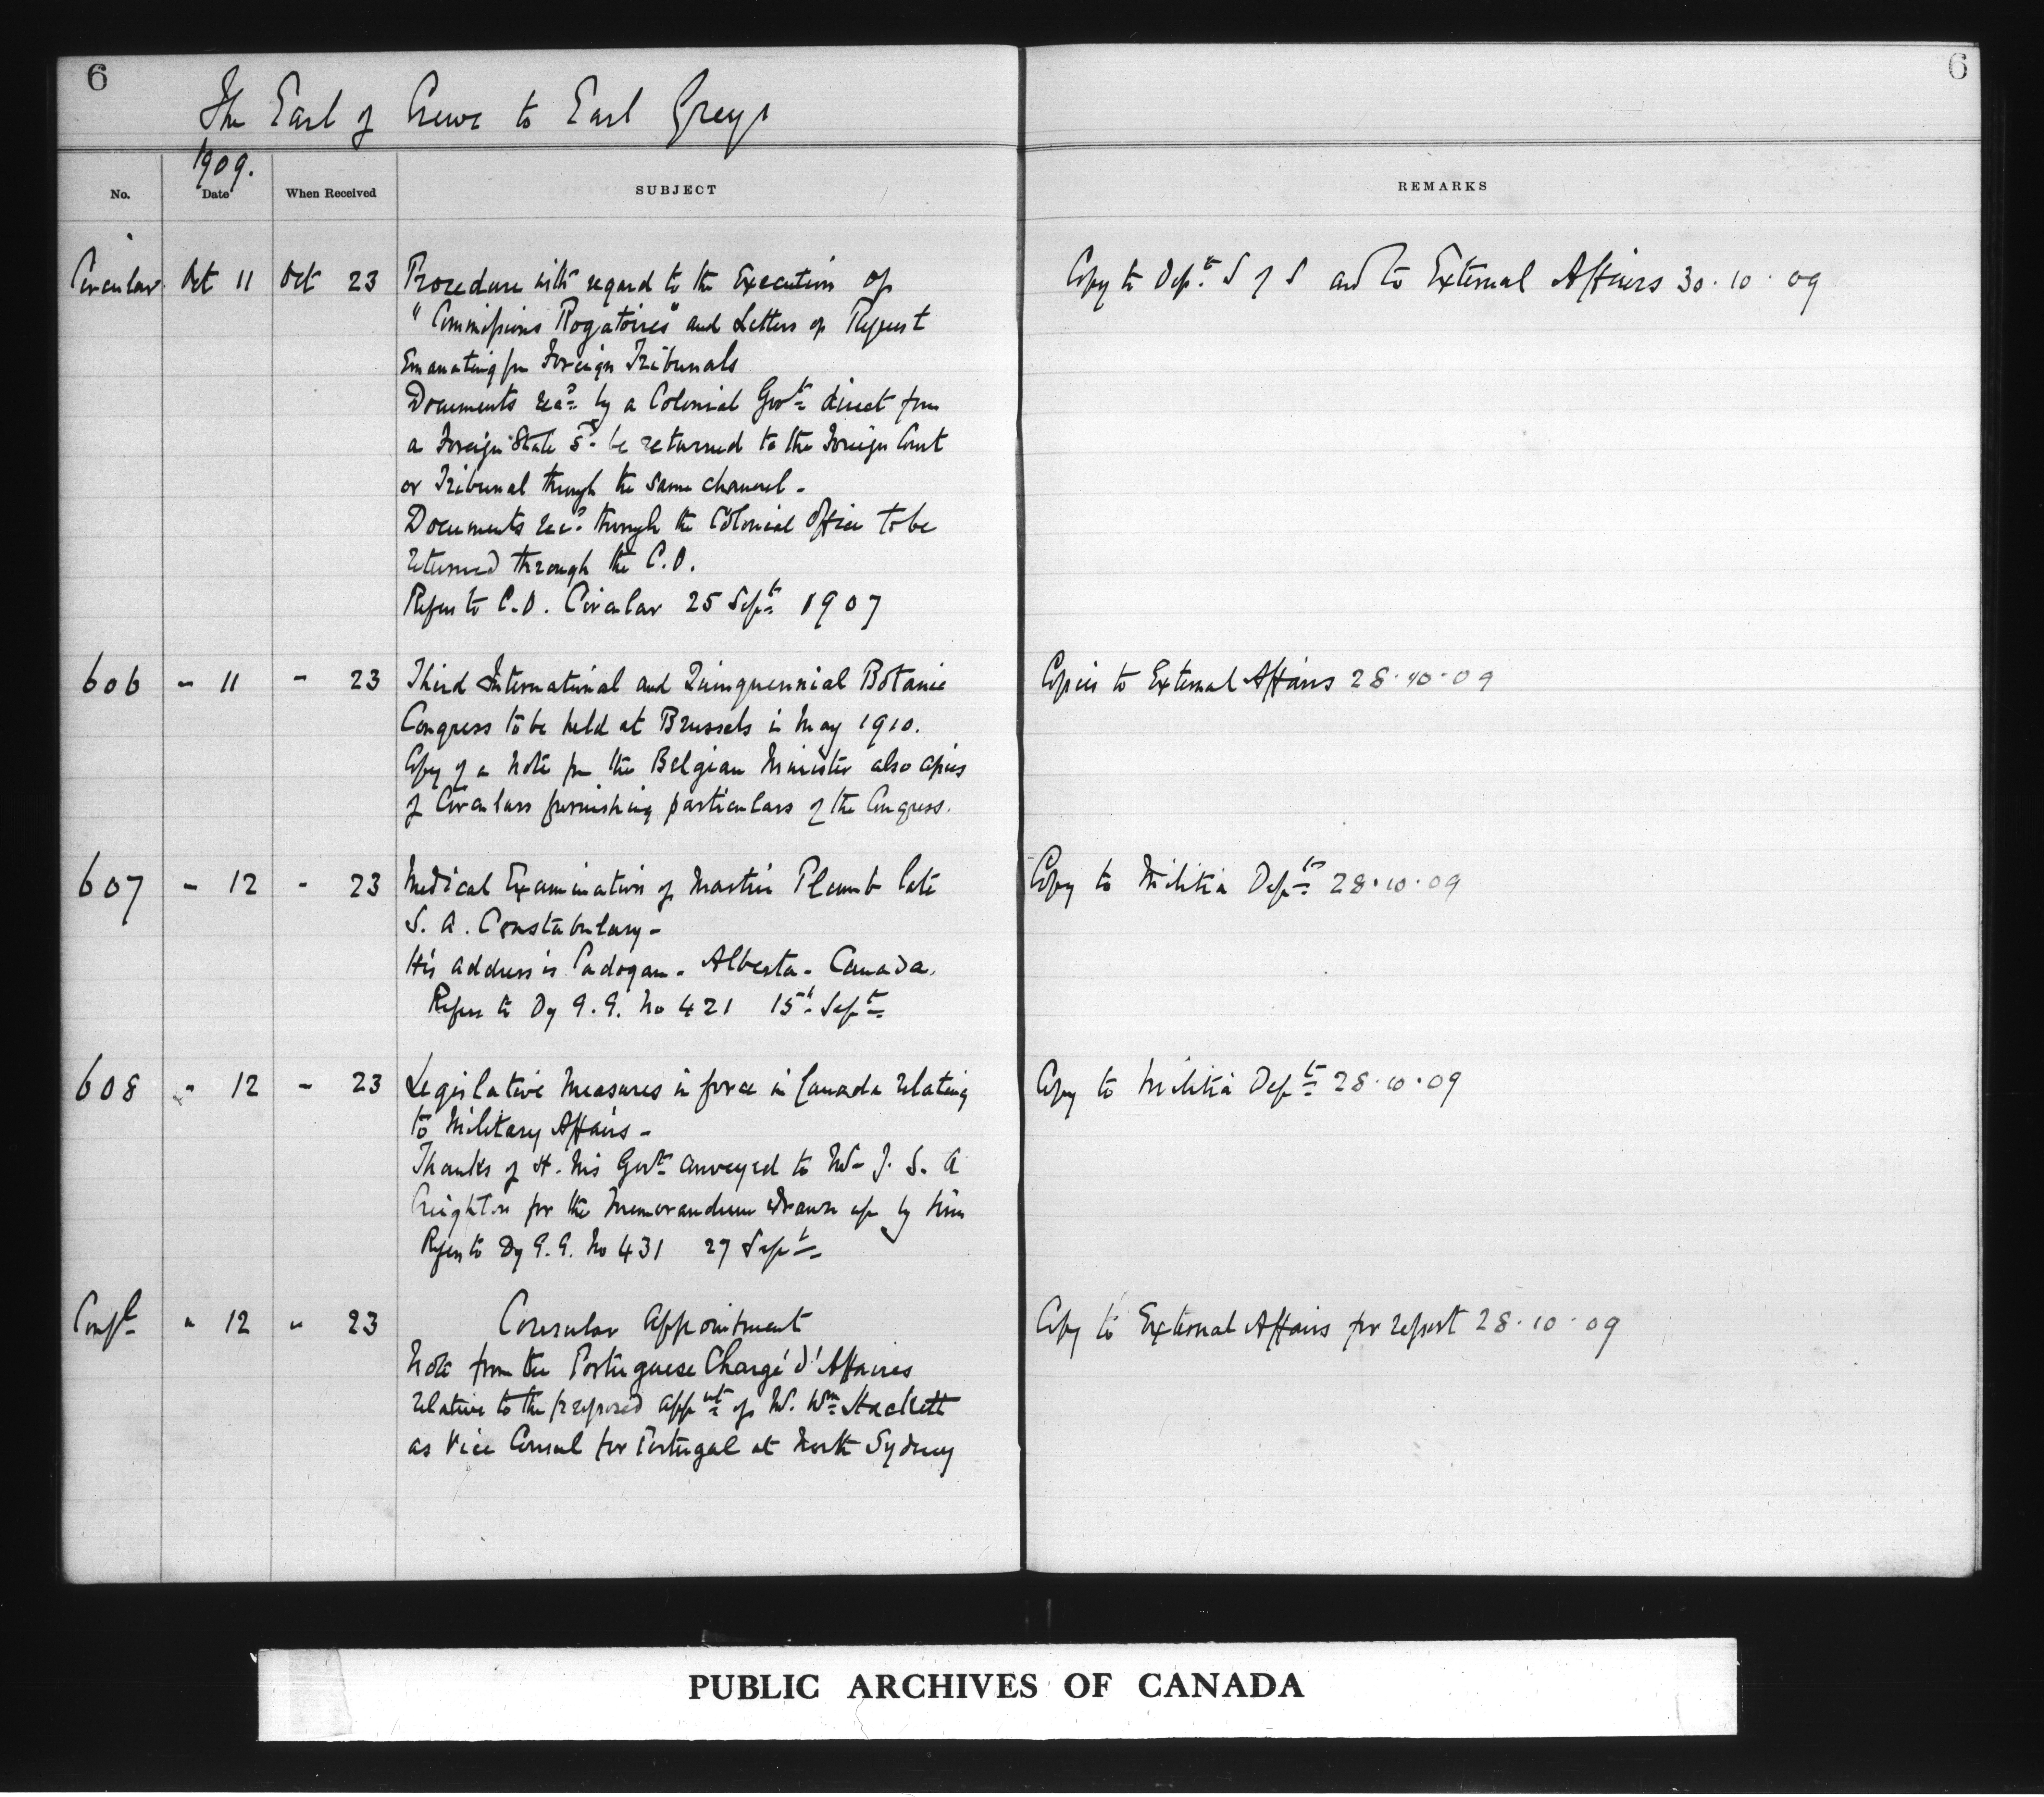 6
6
The Earl of Crewe to Earl Grey
1909.
No. Date When Received SUBJECT REMARKS
Circular Oct 11 Oct 23 Procedure with regard to the Execution of Copy to Dept. S of S and to External Affairs 30.10.09
"Commissions Rogatoires" and Letters of Request
Emanating fm Foreign Tribunals
Documents recd by a Colonial Govt direct from
a Foreign State sd be returned to the Foreign Court
or Tribunal through the same channel -
Documents recd through the Colonial Office to be
returned through the C.O.
Refers to C.O. Circular 25 Sept 1907
606 - 11 - 23 Third International and Quinquennial Botanic Copies to External Affairs 28.10.09
Congress to be held at Brussels in May 1910.
Copy of a Note fm the Belgian Minister also copies
of Circulars furnishing particulars of the Congress.
607 - 12 - 23 Medical Examination of Martin Plumb late Copy to Militia Dept 28.10.09
S. A. Constabulary -
His address is Cadogan - Alberta - Canada.
Refers to Dy G.G. No 421 15th Sept
608 " 12 - 23 Legislative Measures in force in Canada relating Copy to Militia Dept 28.10.09
to Military Affairs -
Thanks of H. Ms Govt conveyed to Mr J. S. A
Creighton for the Memorandum drawn up by him
Refers to Dy G.G. No 431 27 Sept
Confl " 12 " 23 Consular Appointment Copy to External Affairs for report 28.10.09
Note from the Portuguese Chargé d'Affaires
relative to the proposed appnt of Mr. Wm Hackett
as Vice Consul for Portugal at North Sydney
PUBLIC ARCHIVES OF CANADA